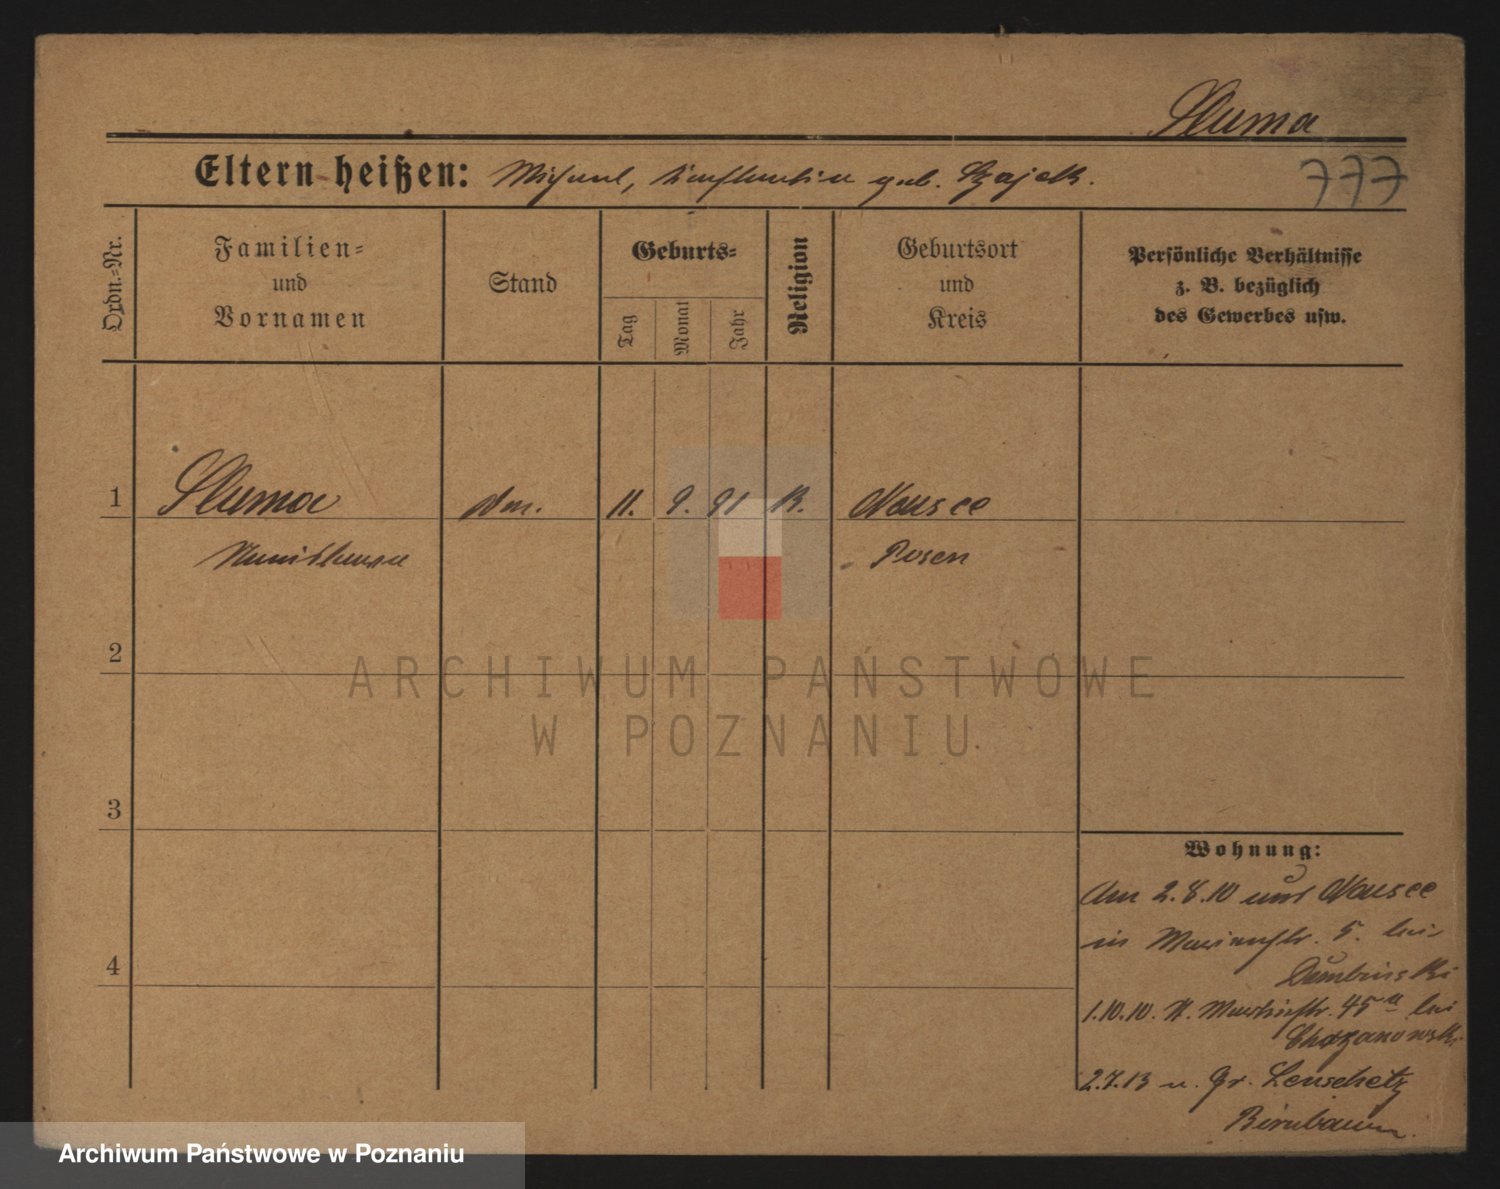 Sluma
Eltern heißen: Michael, Konstantia geb. Szajek.
777
Ordn.-Nr.
Familien-
und
Vornamen
Stand
Geburts-
Tag
Monat
Jahr
Religion
Geburtsort
und
Kreis
Persönliche Verhältnisse
z. B. bezüglich
des Gewerbes usw.
1 Sluma 11. 9. 91 K. Nausee
Posen
2
3
4
ARCHIWUM PAŃSTWOWE
W POZNANIU
Wohnung:
Am 2.8.10 Nausee
in 5. bei
Dembinski
1.10.10. St. Martinstr. 45a bei
Chrzanowski
2.7.13 n. Gr. Lenschetz
Birnbaum.
Archiwum Państwowe w Poznaniu